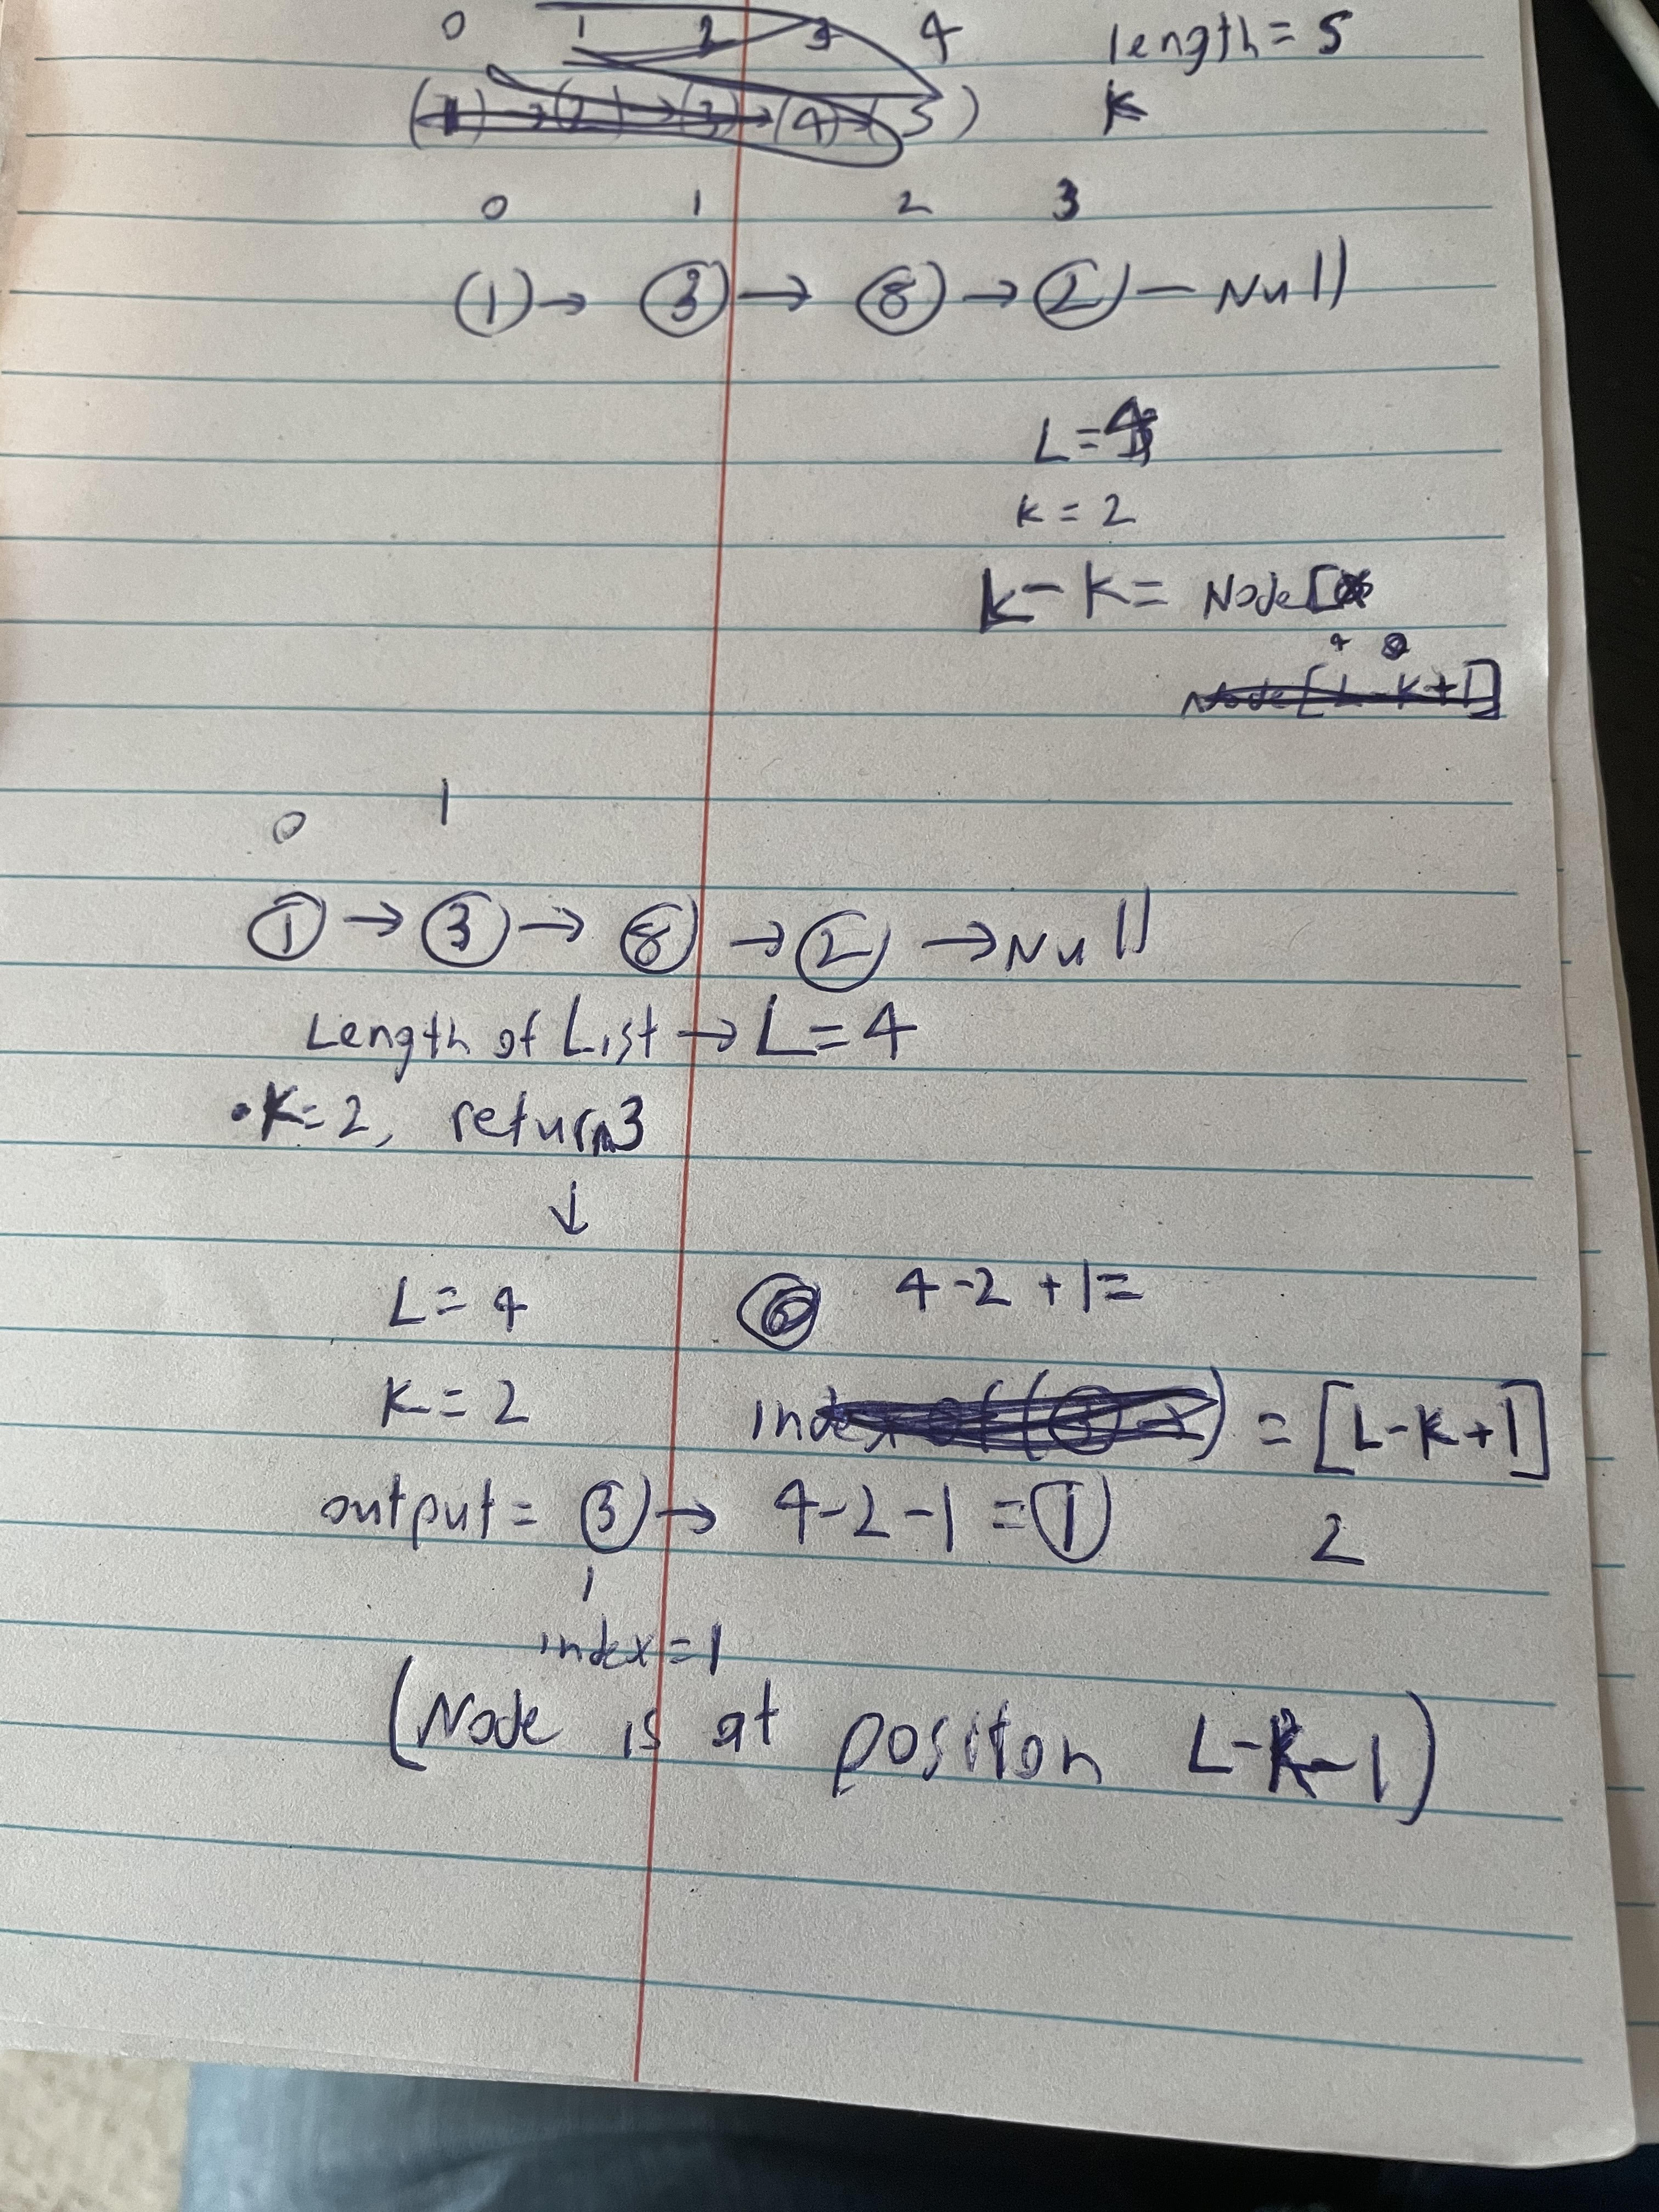 0 1 2 3 4 length = 5
(1) → (2) → (3) → (4) → (5) K
0 1 2 3
(1) → (3) → (8) → (2) — Null
L = 4
K = 2
K - K = Node [
4
Node [L - K + 1]
0 1
(1) → (3) → (8) → (2) → Null
Length of List → L = 4
• K = 2, return 3
↓
L = 4 4 - 2 + 1 =
K = 2 index of (3) = [L - K + 1]
output = (3) → 4 - 2 - 1 = (1) 2
1
index = 1
(Node is at positon L - K - 1)